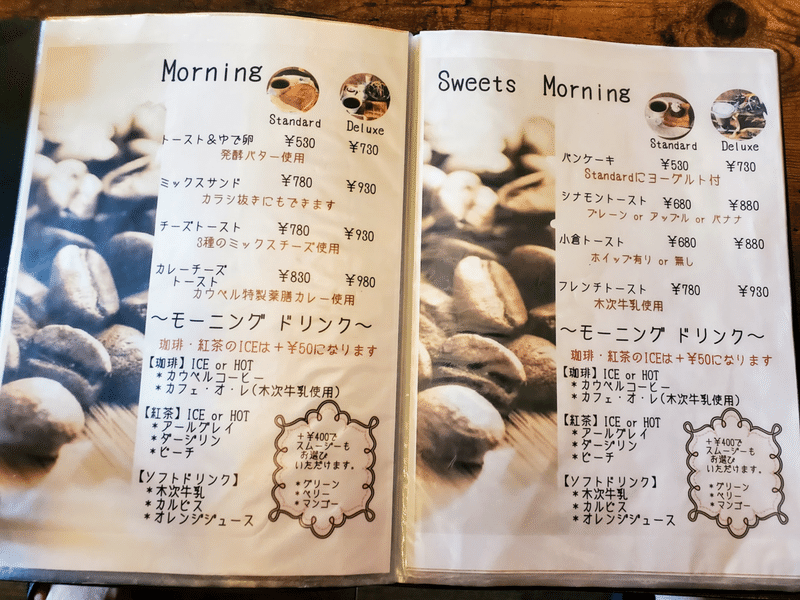 Morning
Standard Deluxe
トースト&ゆで卵 ¥530 ¥730
発酵バター使用
ミックスサンド ¥780 ¥930
カラシ抜きにもできます
チーズトースト ¥780 ¥930
3種のミックスチーズ使用
カレーチーズ
トースト ¥830 ¥980
カウベル特製薬膳カレー使用
～モーニング ドリンク～
珈琲・紅茶のICEは+¥50になります
【珈琲】ICE or HOT
*カウベルコーヒー
*カフェ・オ・レ(木次牛乳使用)
【紅茶】ICE or HOT
*アールグレイ
*ダージリン
*ピーチ
【ソフトドリンク】
*木次牛乳
*カルピス
*オレンジジュース
+¥400で
スムージーも
お選び
いただけます。
*グリーン
*ベリー
*マンゴー
Sweets Morning
Standard Deluxe
パンケーキ ¥530 ¥730
Standardにヨーグルト付
シナモントースト ¥680 ¥880
プレーン or アップル or バナナ
小倉トースト ¥680 ¥880
ホイップ有り or 無し
フレンチトースト ¥780 ¥930
木次牛乳使用
～モーニング ドリンク～
珈琲・紅茶のICEは+¥50になります
【珈琲】ICE or HOT
*カウベルコーヒー
*カフェ・オ・レ(木次牛乳使用)
【紅茶】ICE or HOT
*アールグレイ
*ダージリン
*ピーチ
【ソフトドリンク】
*木次牛乳
*カルピス
*オレンジジュース
+¥400で
スムージーも
お選び
いただけます。
*グリーン
*ベリー
*マンゴー